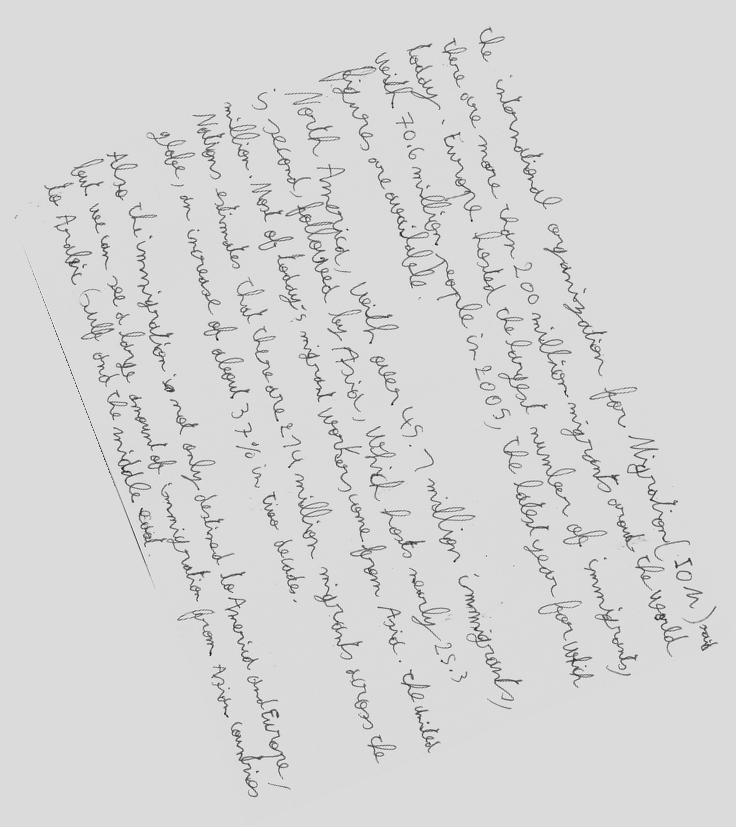 the international organization for Migration (IOM) said
there are more than 200 million migrants aroud the world
today. Europe. hosted the largest number of immigrants,
with 70.6 million people in 2005, the latest year for which
figures are available.
North America, with over 45.1 million immigrants,
is second, followed by Asia, which hosts nearly 25.3
million. Most of today's migrant workers come from Asia. the united
Nations estimates that there are 214 million migrants across the
globe, an increase of about 37% in two decades.
Also the immigration is not only destined to America and Europe,
but we can see a large amount of immigration from Asian countries
to Arabic Gulf and the middle east.